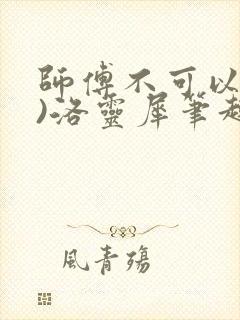 師傅不可以
)洛靈犀筆趣
風青殤